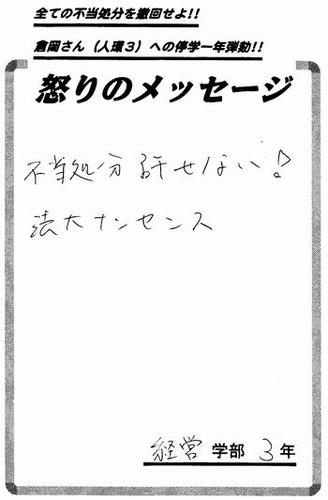 全ての不当処分を撤回せよ!!
倉岡さん（人環３）への停学一年弾劾!!
怒りのメッセージ
不当処分許せない!
法大ナンセンス
経営 学部 3 年